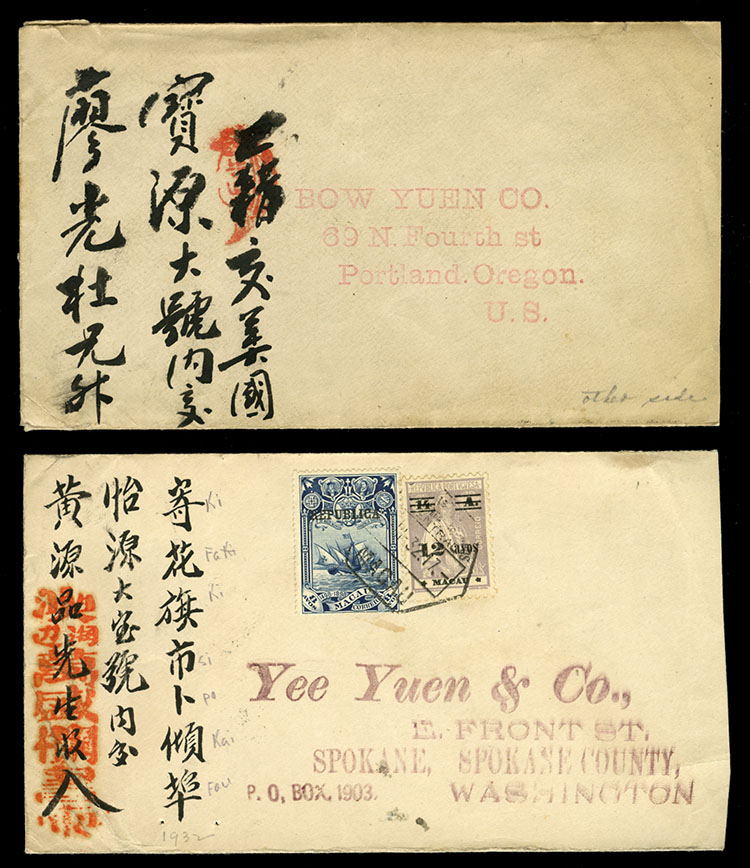 交美國
寳源大號內交
廖光壯兄外
BOW YUEN CO.
69 N. Fourth st
Portland. Oregon.
U. S.
other side
寄花旗市卜傾埠
怡源大宝號內
黄源品先生收入
Ki
Fa Ki
Ki
si
po
Kai
Fou
1932
REPUBLICA
1498-1898
MACAU
CORREIO
REPUBLICA PORTUGUESA
14 A.
12 avos
MACAU
CORREIO
MACAU
Yee Yuen & Co.,
E. FRONT ST.
SPOKANE, SPOKANE COUNTY,
P. O, BOX, 1903. WASHINGTON